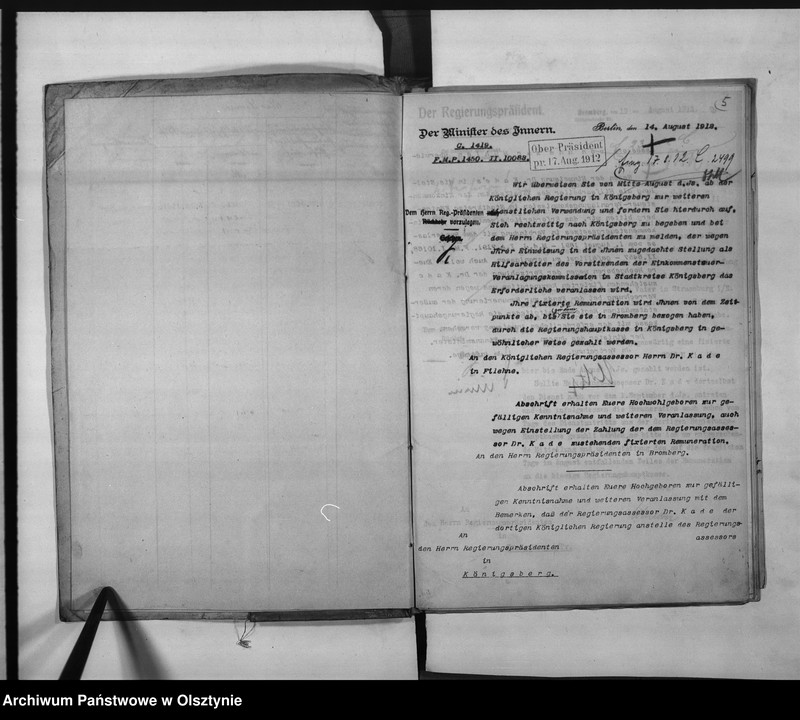 5
Der Regierungspräsident.
Der Minister des Innern.
Berlin, den 14. August 1912.
G. 1419.
P.M.P. 1450. II. 10062.
Ober Präsident
pr. 17. Aug. 1912
17. 8. 12. C. 2499
Wir überweisen Sie von Mitte August d.Js. ab der
Königlichen Regierung in Königsberg zur weiteren
Dem Herrn Reg.-Präsidenten
vorzulegen.
dienstlichen Verwendung und fordern Sie hierdurch auf,
Sich rechtzeitig nach Königsberg zu begeben und bei
dem Herrn Regierungspräsidenten zu melden, der wegen
Ihrer Einweisung in die Ihnen zugedachte Stellung als
Hilfsarbeiter des Vorsitzenden der Einkommensteuer-
Veranlagungskommission in Stadtkreise Königsberg das
Erforderliche veranlassen wird.
Ihre fixierte Remuneration wird Ihnen von dem Zeit-
punkte ab, bis Sie sie in Bromberg bezogen haben,
durch die Regierungshauptkasse in Königsberg in ge-
wöhnlicher Weise gezahlt werden.
An den Königlichen Regierungsassessor Herrn Dr. K a d e
in Filehne.
Abschrift erhalten Euere Hochwohlgeboren zur ge-
fälligen Kenntnisnahme und weiteren Veranlassung, auch
wegen Einstellung der Zahlung der dem Regierungsasses-
sor Dr. K a d e zustehenden fixierten Remuneration.
An den Herrn Regierungspräsidenten in Bromberg.
Abschrift erhalten Euere Hochgeboren zur gefälli-
gen Kenntnisnahme und weiteren Veranlassung mit dem
Bemerken, daß der Regierungsassessor Dr. K a d e der
dortigen Königlichen Regierung anstelle des Regierungs-
assessors
An
den Herrn Regierungspräsidenten
in
K ö n i g s b e r g.
Archiwum Państwowe w Olsztynie